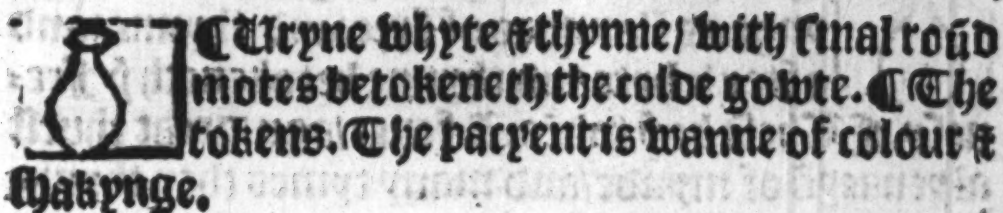 ¶ Uryne whyte ⁊ thynne / with smal roũd
motes betokeneth the colde gowte. ¶ The
tokens. The pacyent is wanne of colour ⁊
shakynge.